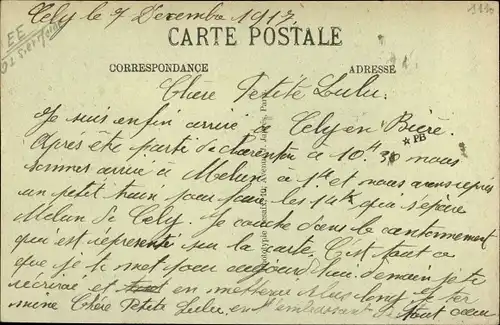 Cely le 7 Decembre 1917
CARTE POSTALE
CORRESPONDANCE
ADRESSE
Chère Petite Lulu.
Je suis enfin arrivé a Cely en Bière.
PB
Après être parti de Charenton a 10h 30 nous
sommes arrivé à Melun a 1h et nous avons repris
un petit train pour faire les 14k qui sépare
Melun de Cely. Je couche dans le cantonnement
qui est représenté sur la carte. C'est tout ce
que je te met pour aujourd'hui. demain je te
récrirai et en metterai plus long je ter
mine Chère Petite Lulu, en t'embrassant de tout cœur